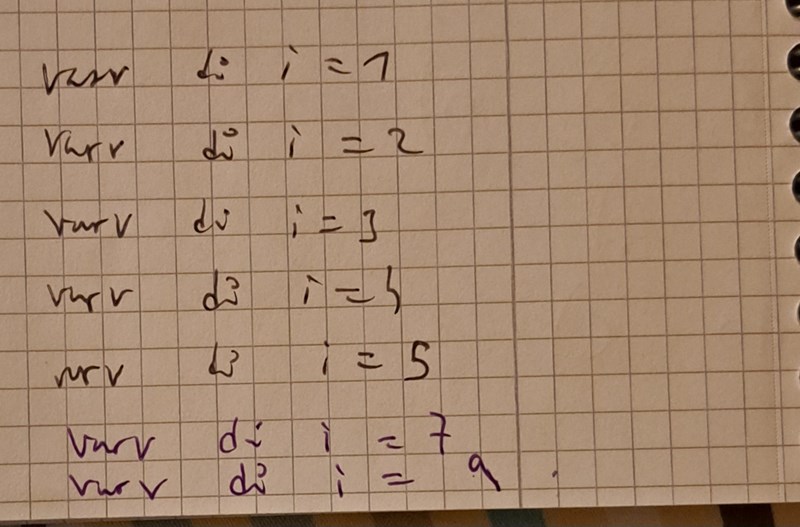 varr di i = 1
varr di i = 2
varv di i = 3
varv di i = 4
vrv di i = 5
varv di i = 7
varv di i = 9